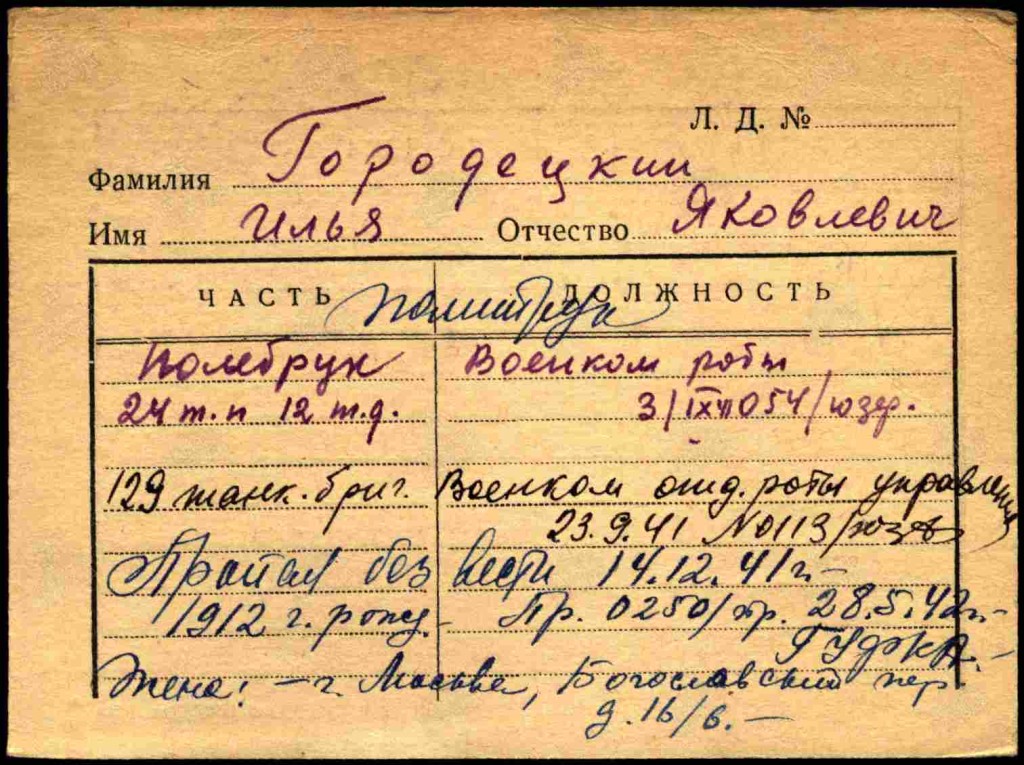 Л. Д. №
Фамилия Городецкий
Имя Илья Отчество Яковлевич
ЧАСТЬ ДОЛЖНОСТЬ
политрук
Военком роты
24 т.п 12 т.д. 3/IX 054/юзф.
129 танк. бриг. Военком отд. роты управления
23.9.41 №0113/юзф
Пропал без вести 14.12.41 г.-
1912 г. рожд. Пр. 0250/пр. 28.5.42 г.-
ГУФКА.-
Жена: - г. Москва, Богославский пер.
д. 16/6.-